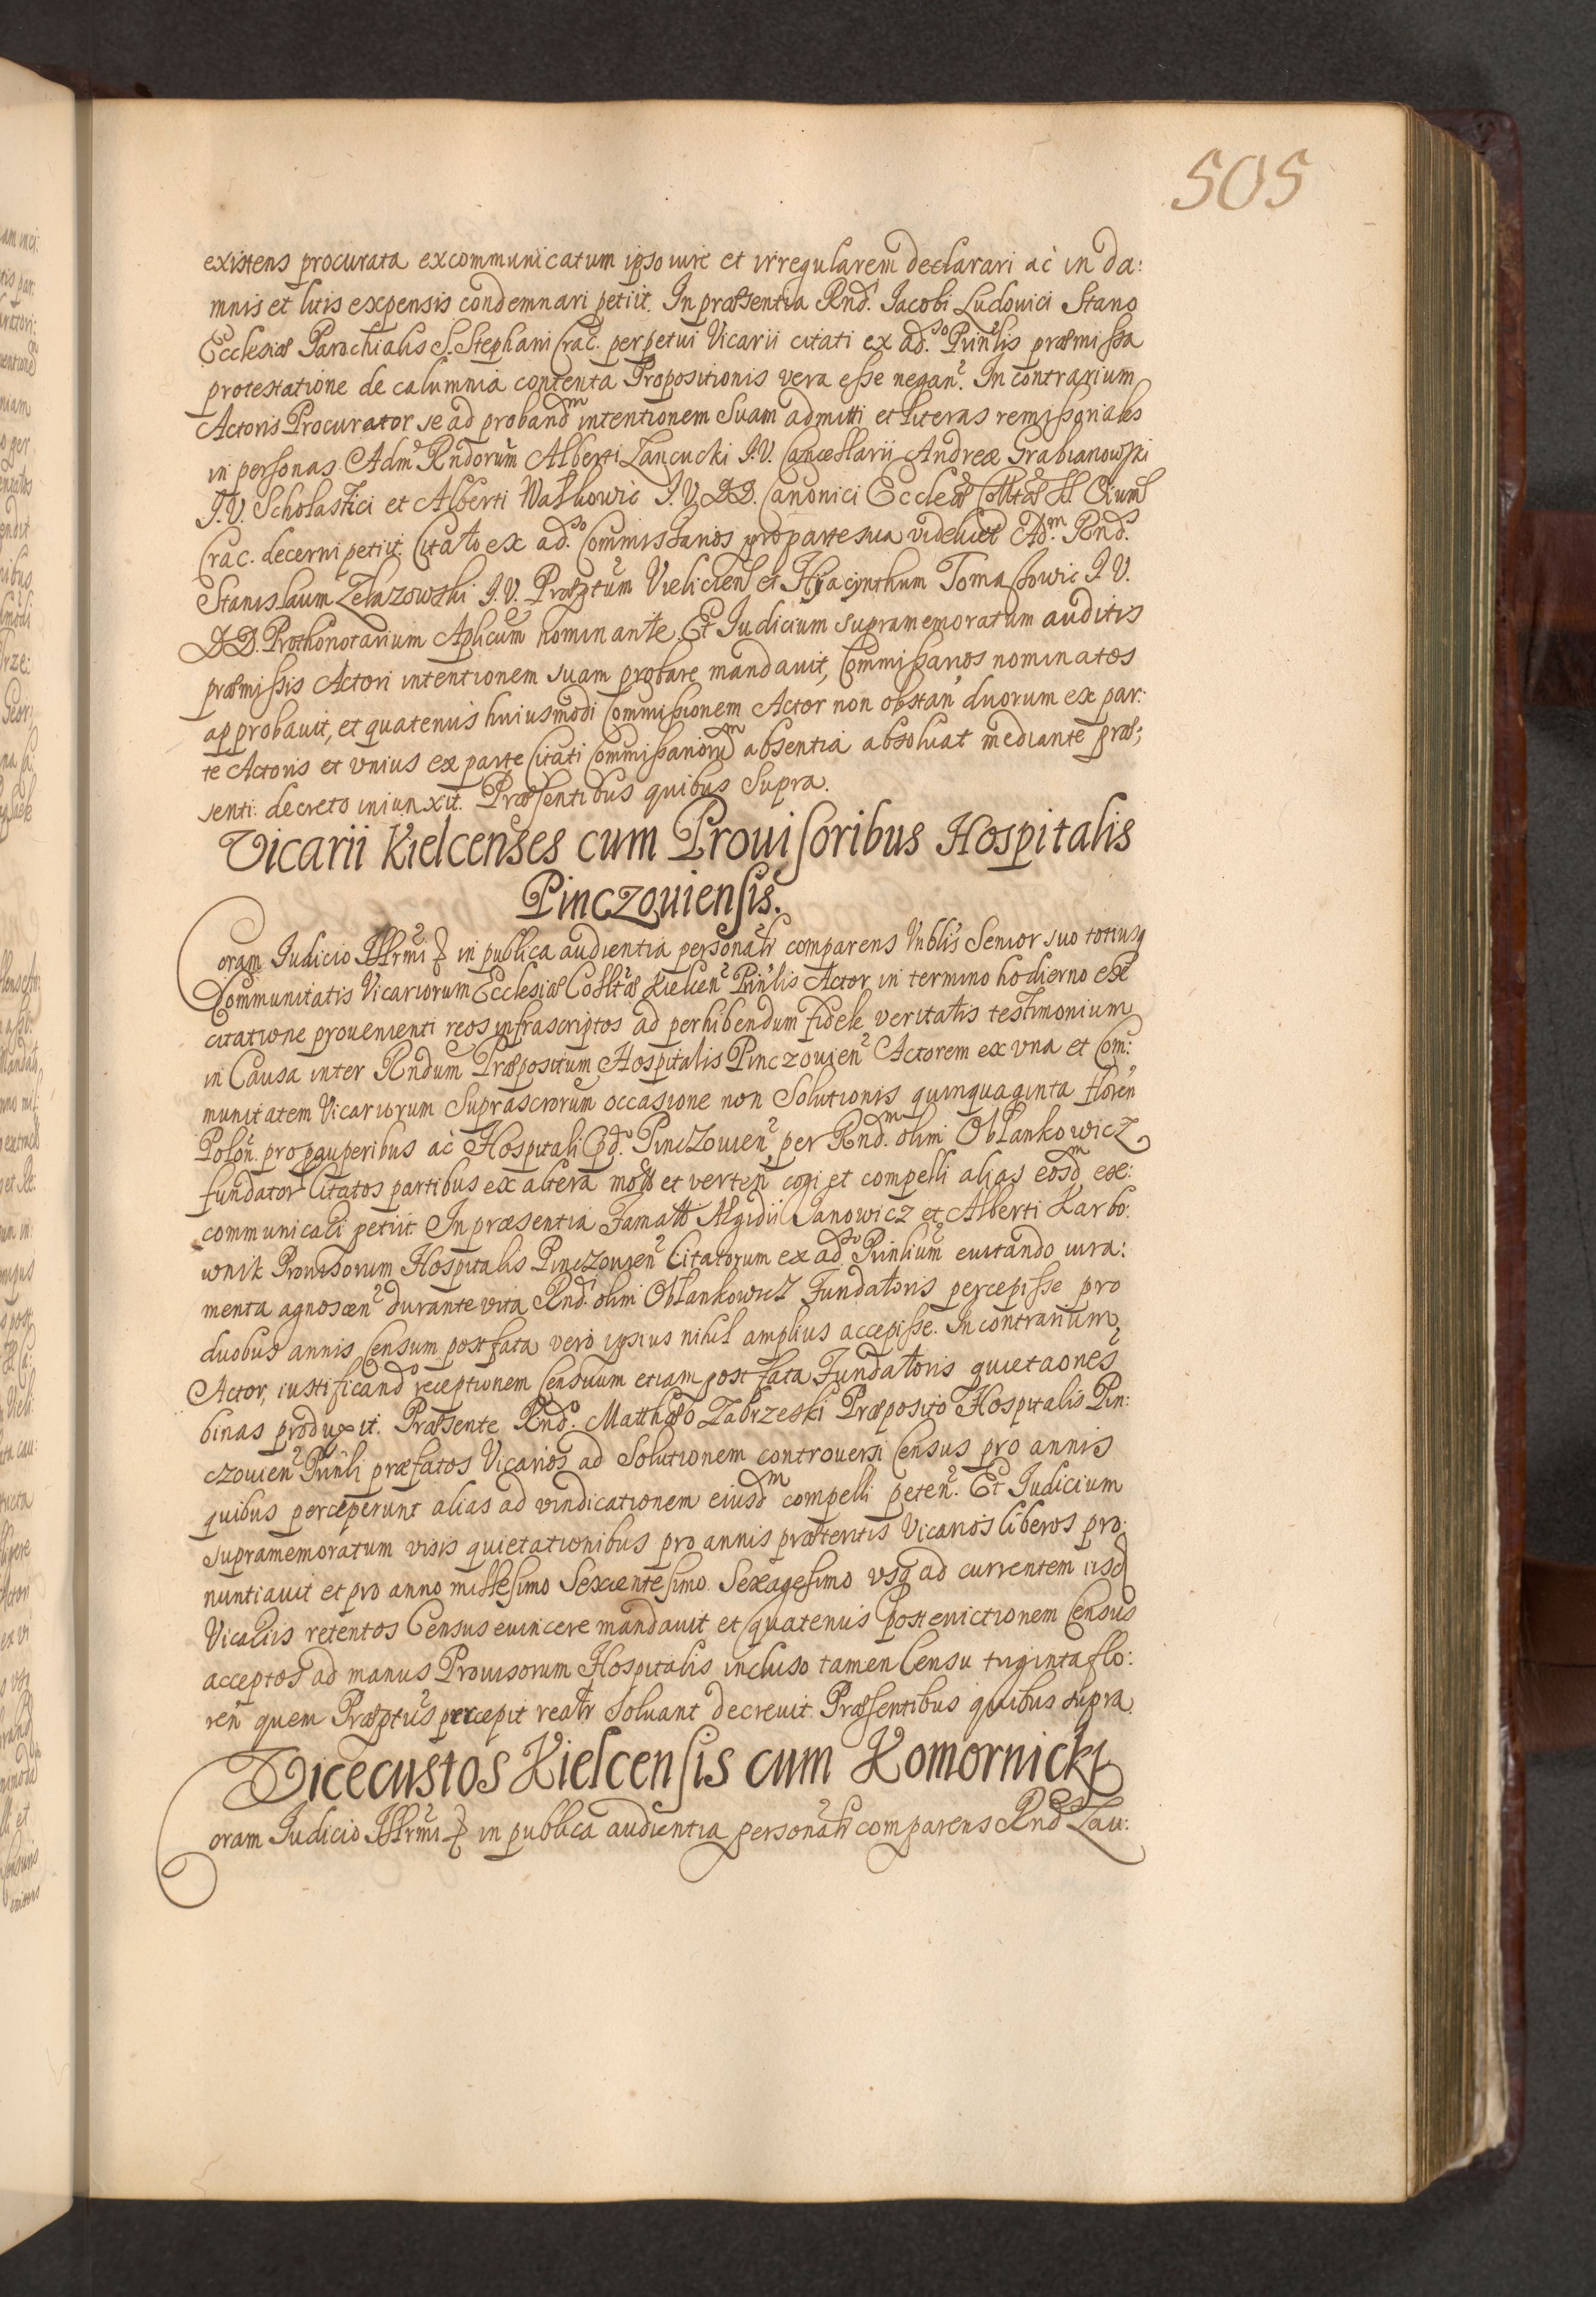 505
existens procurata excommunicatum ipso iure et irregularem declarari ac in da:
mnis et litis expensis condemnari petiit. In præsentia Rnd.i Jacobi Ludovici Stano
Ecclesiæ Parochialis S. Stephani Crac. perpetui Vicarii citati ex ad.so Prinlis præmissa
protestatione de calumnia contenta Propositionis vera esse negan. In contrarium
Actoris Procurator se ad proband.m intentionem suam admitti et literas remissoriales
in personas Adm Rndorum Alberti Lancucki I.V. Cancellarii Andreæ Grabianowski
I.V. Scholastici et Alberti Walkowic I.V.DD. Canonici Eccles Colltæ SS. Oium
Crac. decerni petiit. Citato ex ad.so Commissarios pro parte sua videlicet Ad.m Rnd.
Stanislaum Zelazowski I.V. Præptum Vieliciens et Hyacynthum Tomassowic I.V.
DD. Prothonotarium Aplicum nominante. Et Judicium supramemoratum auditis
præmissis Actori intentionem suam probare mandauit, Commissarios nominatos
approbauit, et quatenus huiusmodi Commissionem Actor non obstan duorum ex par:
te Actoris et vnius ex parte Citati Commissariorum absentia absoluat mediante præ:
senti decreto iniunxit. Præsentibus quibus supra.
Vicarii Kielcenses cum Prouisoribus Hospitalis
Pinczouiensis.
Coram Judicio Illrmi & in publica audientia personalr comparens Nblis Senior suo totiusq
Communitatis Vicariorum Ecclesiæ Colltæ Kielcen Prinlis Actor in termino hodierno ex
citatione prouenienti reos infrascriptos ad perhibendum fidele veritatis testimonium
in Causa inter Rndum Præpositum Hospitalis Pinczouien Actorem ex vna et Com:
munitatem Vicariorum suprascrorum occasione non Solutionis quinquaginta floren
Polon. pro pauperibus ac Hospitali pd.o Pinczouien per Rnd.m olim Oblankowicz
fundator Citatos partibus ex altera mota et verten cogi et compelli alias eosd.m exc:
communicari petiit. In præsentia Famatt Ægidii Janowicz et Alberti Karbo:
wnik Prouisorum Hospitalis Pinczouien Citatorum ex ad.so Prinlium euitando iura:
menta agnoscen durante vita Rnd.i olim Oblankowicz Fundatoris percepisse pro
duobus annis Censum post fata vero ipsius nihil amplius accepisse. In contrarium
Actor, iustificando receptionem Censuum etiam post fata Fundatoris quietaones
binas produxit. Præsente Rnd.o Matthæo Zabrzeski Præposito Hospitalis Pin:
czouien Prinli præfatos Vicarios ad Solutionem controuersi Census pro annis
quibus perceperunt alias ad vindicationem eiusd.m compelli peten. Et Judicium
supramemoratum visis quietationibus pro annis præteritis Vicarios liberos pro:
nuntiauit et pro anno millesimo Sexcentesimo Sexagesimo vsq ad currentem iisd
Vicariis retentos Census euincere mandauit et quatenus post euictionem Census
acceptos ad manus Prouisorum Hospitalis incluso tamen Censu triginta flo:
ren quem Præptus percepit realr soluant decreuit. Præsentibus quibus supra.
Vicecustos Kielcensis cum Komornicki
Coram Judicio Illrmi & in publica audientia personalr comparens Rnd Lau: